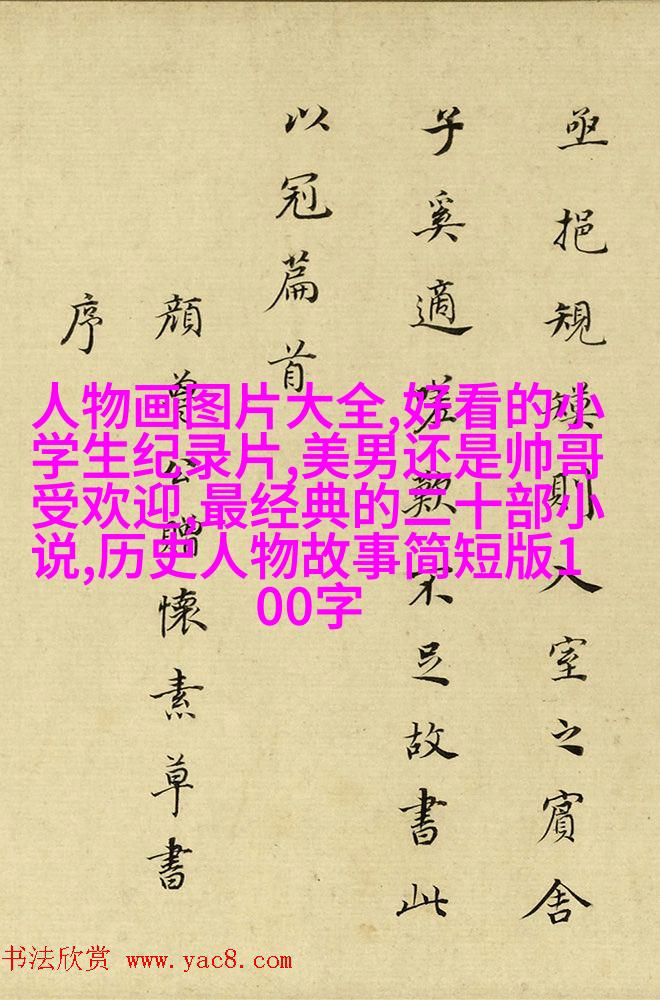 亟挹規矩則入室之賓舍
子奚適嗟歎不足故書此
以冠篇首
顏魯公贈懷素草書
序
人物画图片大全,好看的小
学生纪录片,美男还是帅哥
受欢迎,最经典的三十部小
说,历史人物故事简短版1
00字
书法欣赏 www.yac8.com